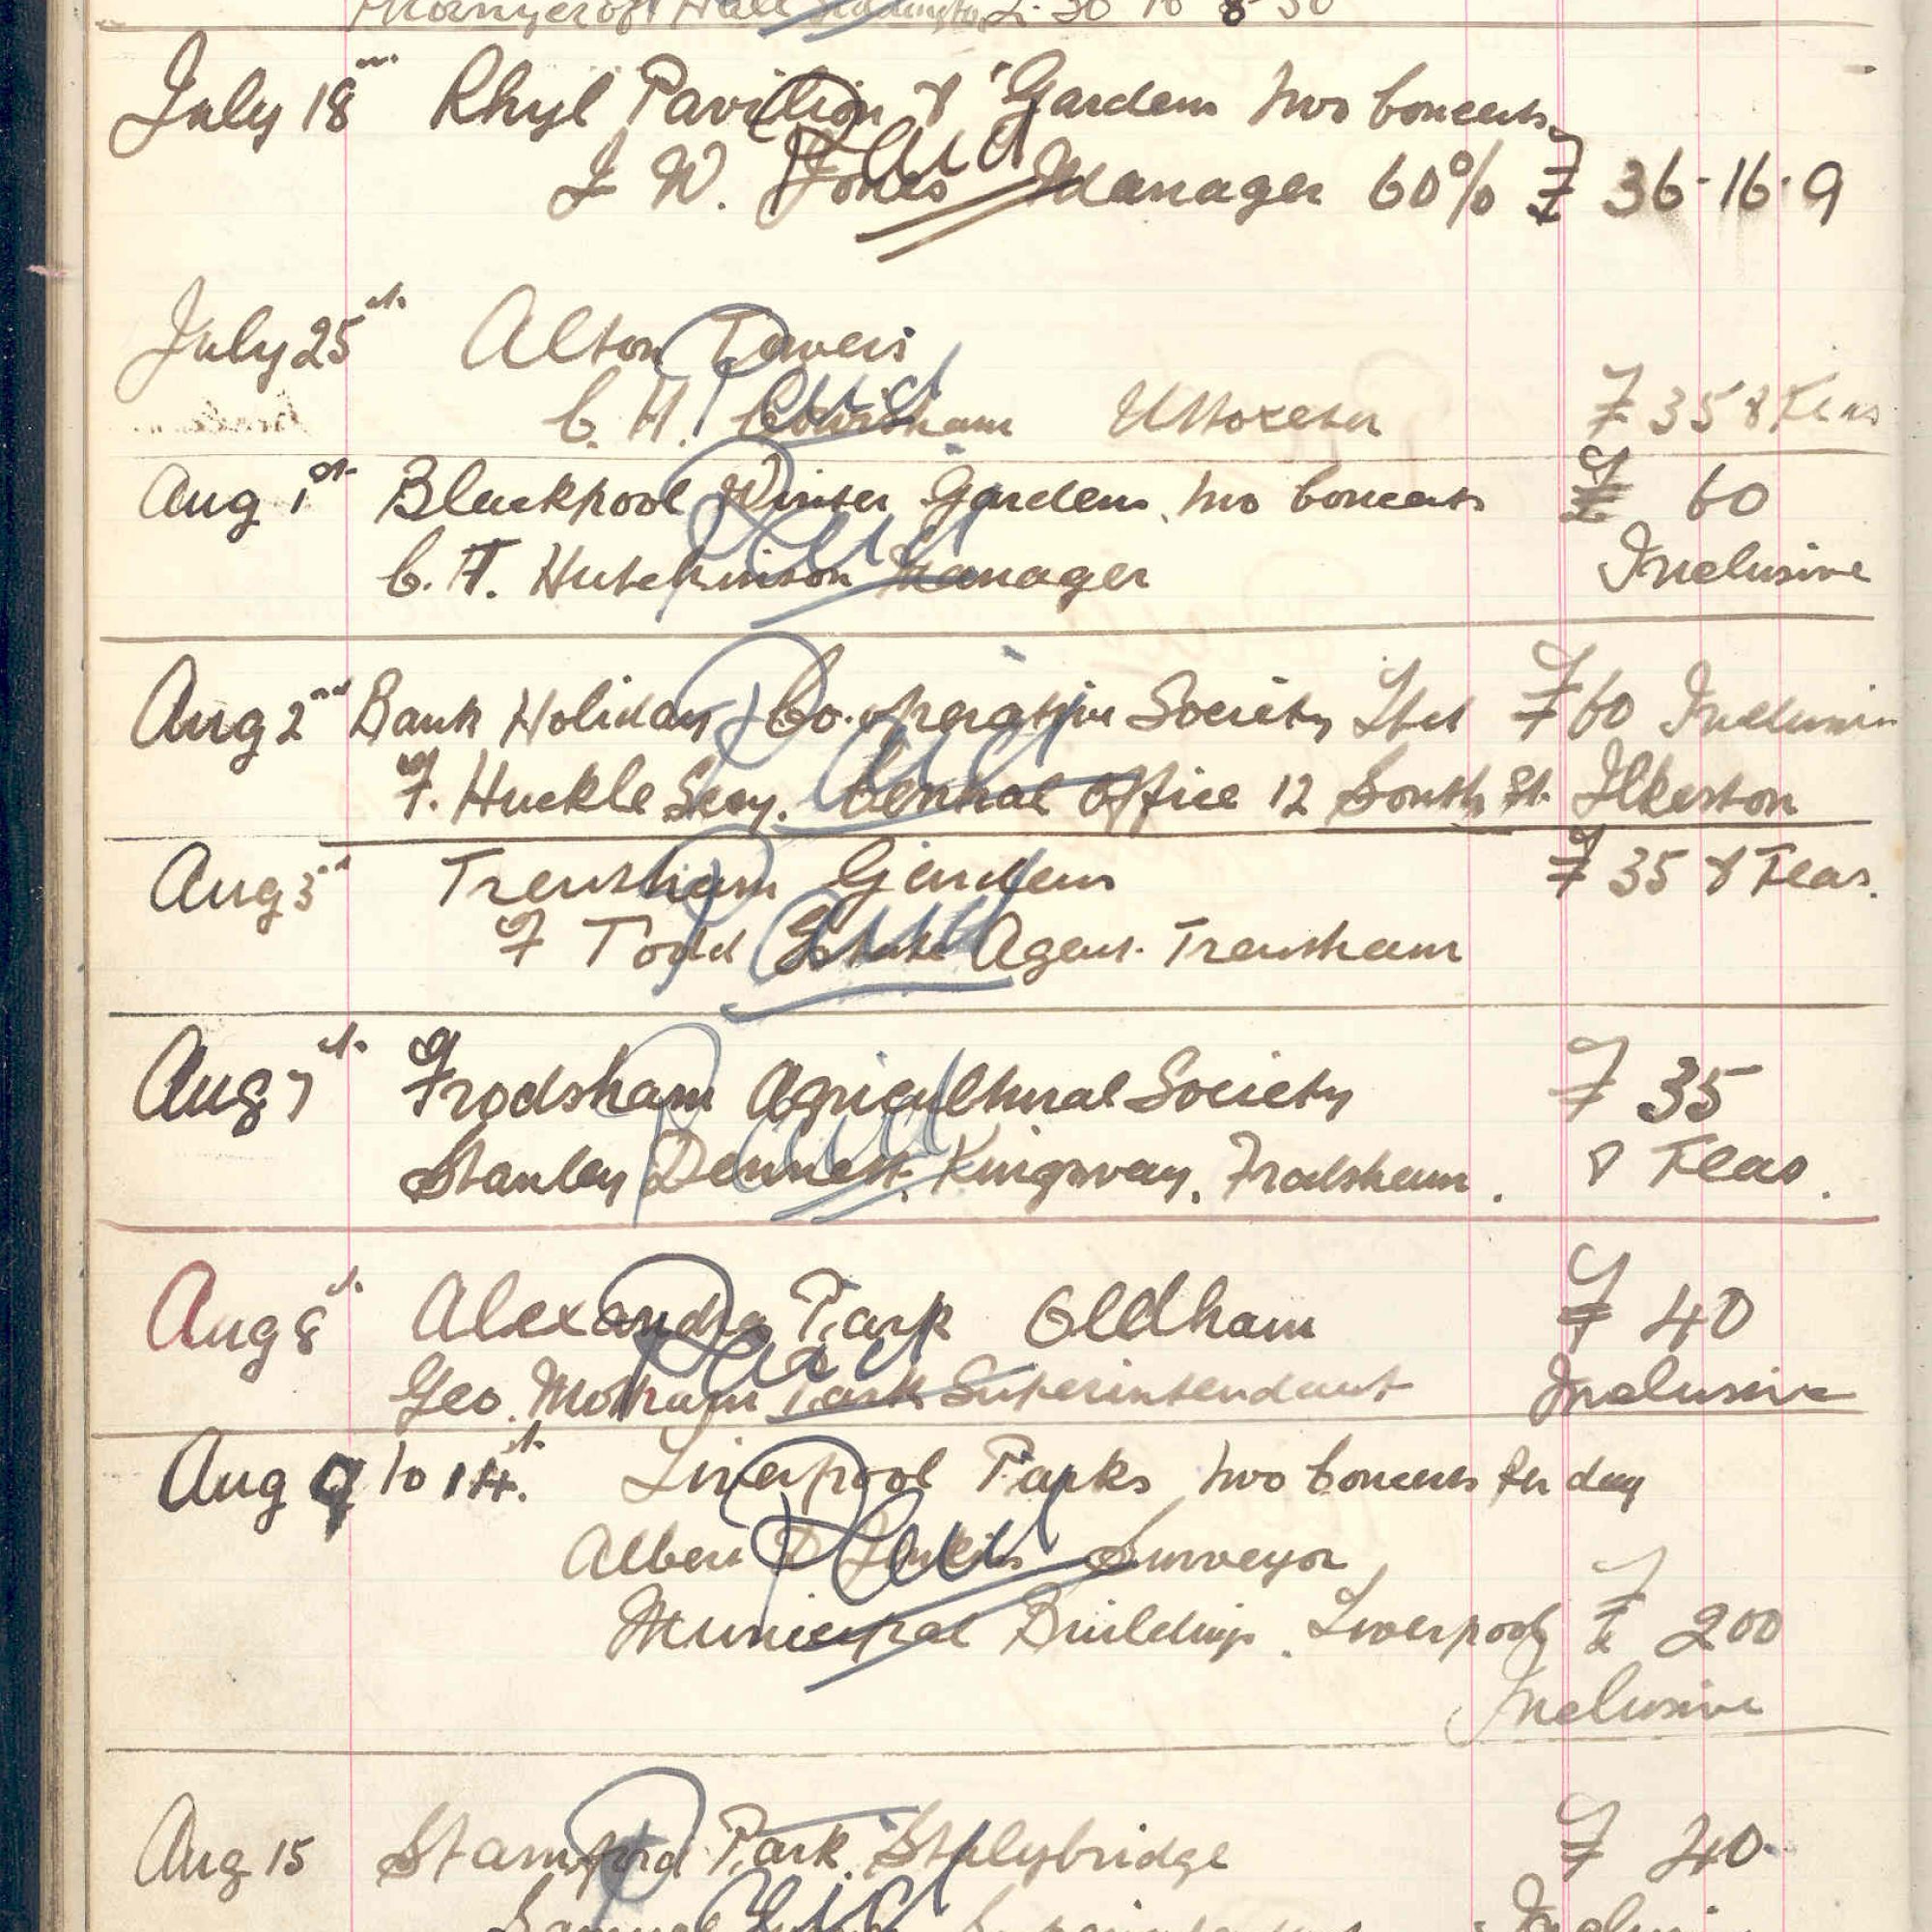 Hall 30 10 8-30
July 18th Rhyl Pavilion & Gardens two Concerts
J W. Jones Manager 60% £ 36-16-9
Paid
July 25th Alton Towers
C. H. Uttoxeter £ 35 & Teas
Paid
Aug 1st Blackpool Winter Gardens two Concerts £ 60
C. F. Hutchinson Manager Inclusive
Paid
Aug 2nd Bank Holiday Co.operative Society Ltd £60 Inclusive
F. Huckle Secy. Central Office 12 South St. Ilkeston
Paid
Aug 5th Trentham Gardens £ 35 & Teas.
F Todd Estate Agent. Trentham
Paid
Aug 7th Frodsham Agricultural Society £ 35
Stanley Dennett. Kingsway. Frodsham. & Teas.
Paid
Aug 8th Alexandra Park Oldham £ 40
Geo. Mottram Park Superintendant Inclusive
Paid
Aug 9 to 14th. Liverpool Parks two Concerts per day
Albert D Jenkins Surveyor
Municipal Buildings. Liverpool £ 200
Inclusive
Paid
Aug 15 Stamford Park. Stalybridge £ 40.
Samuel
Paid